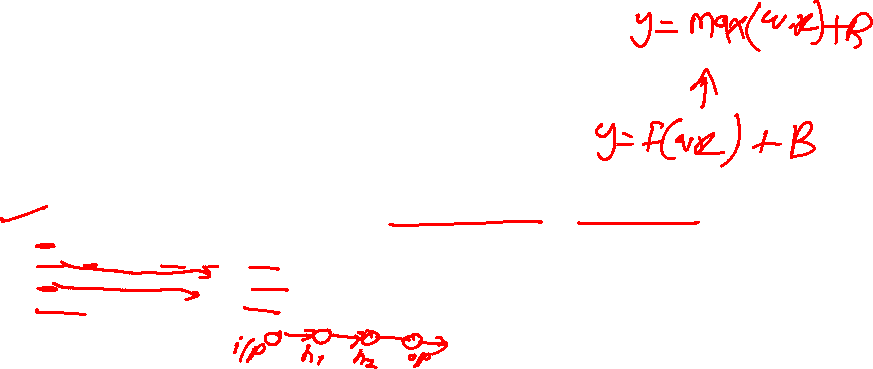 y = max(w.x) + B
y = f(wx) + B
i/p h₁ h₂ o/p